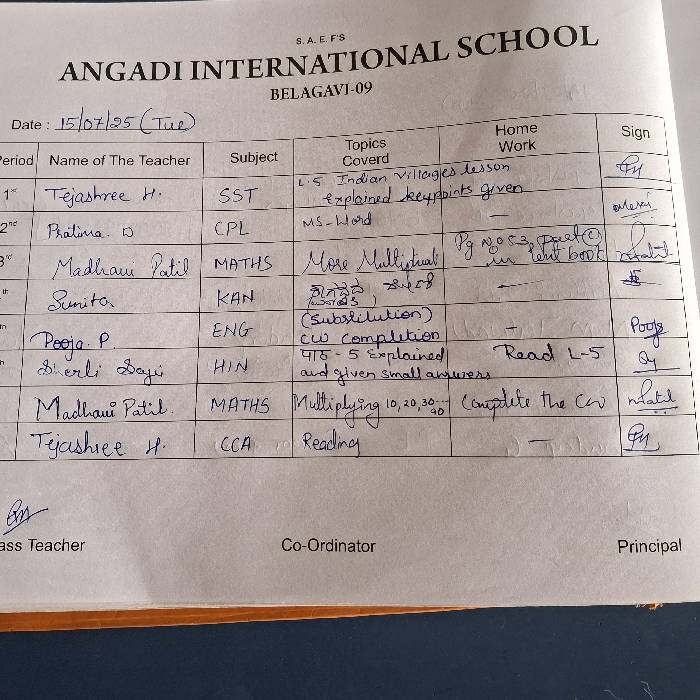 S. A. E. F'S
ANGADI INTERNATIONAL SCHOOL
BELAGAVI-09
Date : 15/07/25 (Tue)
Period Name of The Teacher Subject Topics Coverd Home Work Sign
1st Tejashree H. SST L-5 Indian Villages lesson explained keypoints given
2nd Pratima D CPL MS-Word —
Madhavi Patil MATHS More Multiptual Pg No 53, part (c) in text book
Sunita KAN —
Pooja. P. ENG (Substitution) CW completion — Pooja
Sherli Saji HIN पाठ - 5 Explained and given small answers Read L-5
Madhavi Patil MATHS Multiplying 10, 20, 30--- 90 Complete the CW
Tejashree H. CCA Reading —
ass Teacher Co-Ordinator Principal